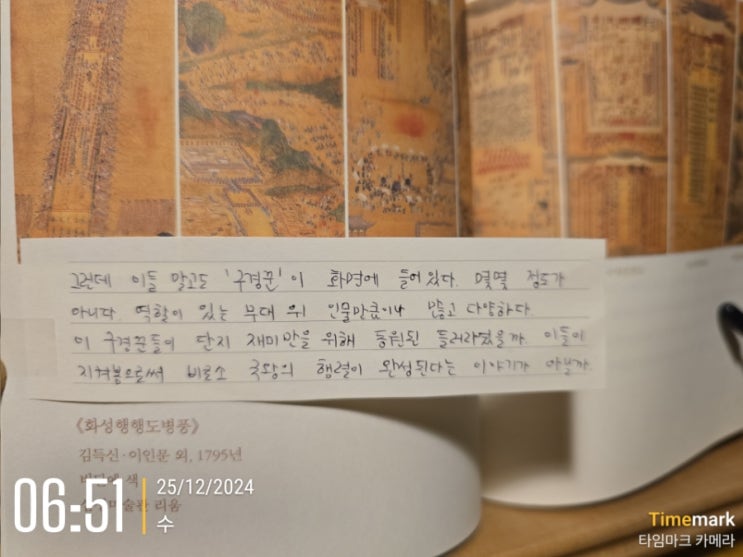 그런데 이들 말고도 '구경꾼'이 화면에 들어있다. 몇몇 정도가
아니다. 역할이 있는 무대 위 인물만큼이나 많고 다양하다.
이 구경꾼들이 단지 재미만을 위해 동원된 들러리였을까. 이들이
지켜봄으로써 비로소 국왕의 행렬이 완성된다는 이야기가 아닐까.
《화성행행도병풍》
김득신·이인문 외, 1795년
비단에 색
미술관 리움
06:51
25/12/2024
수
Timemark
타임마크 카메라